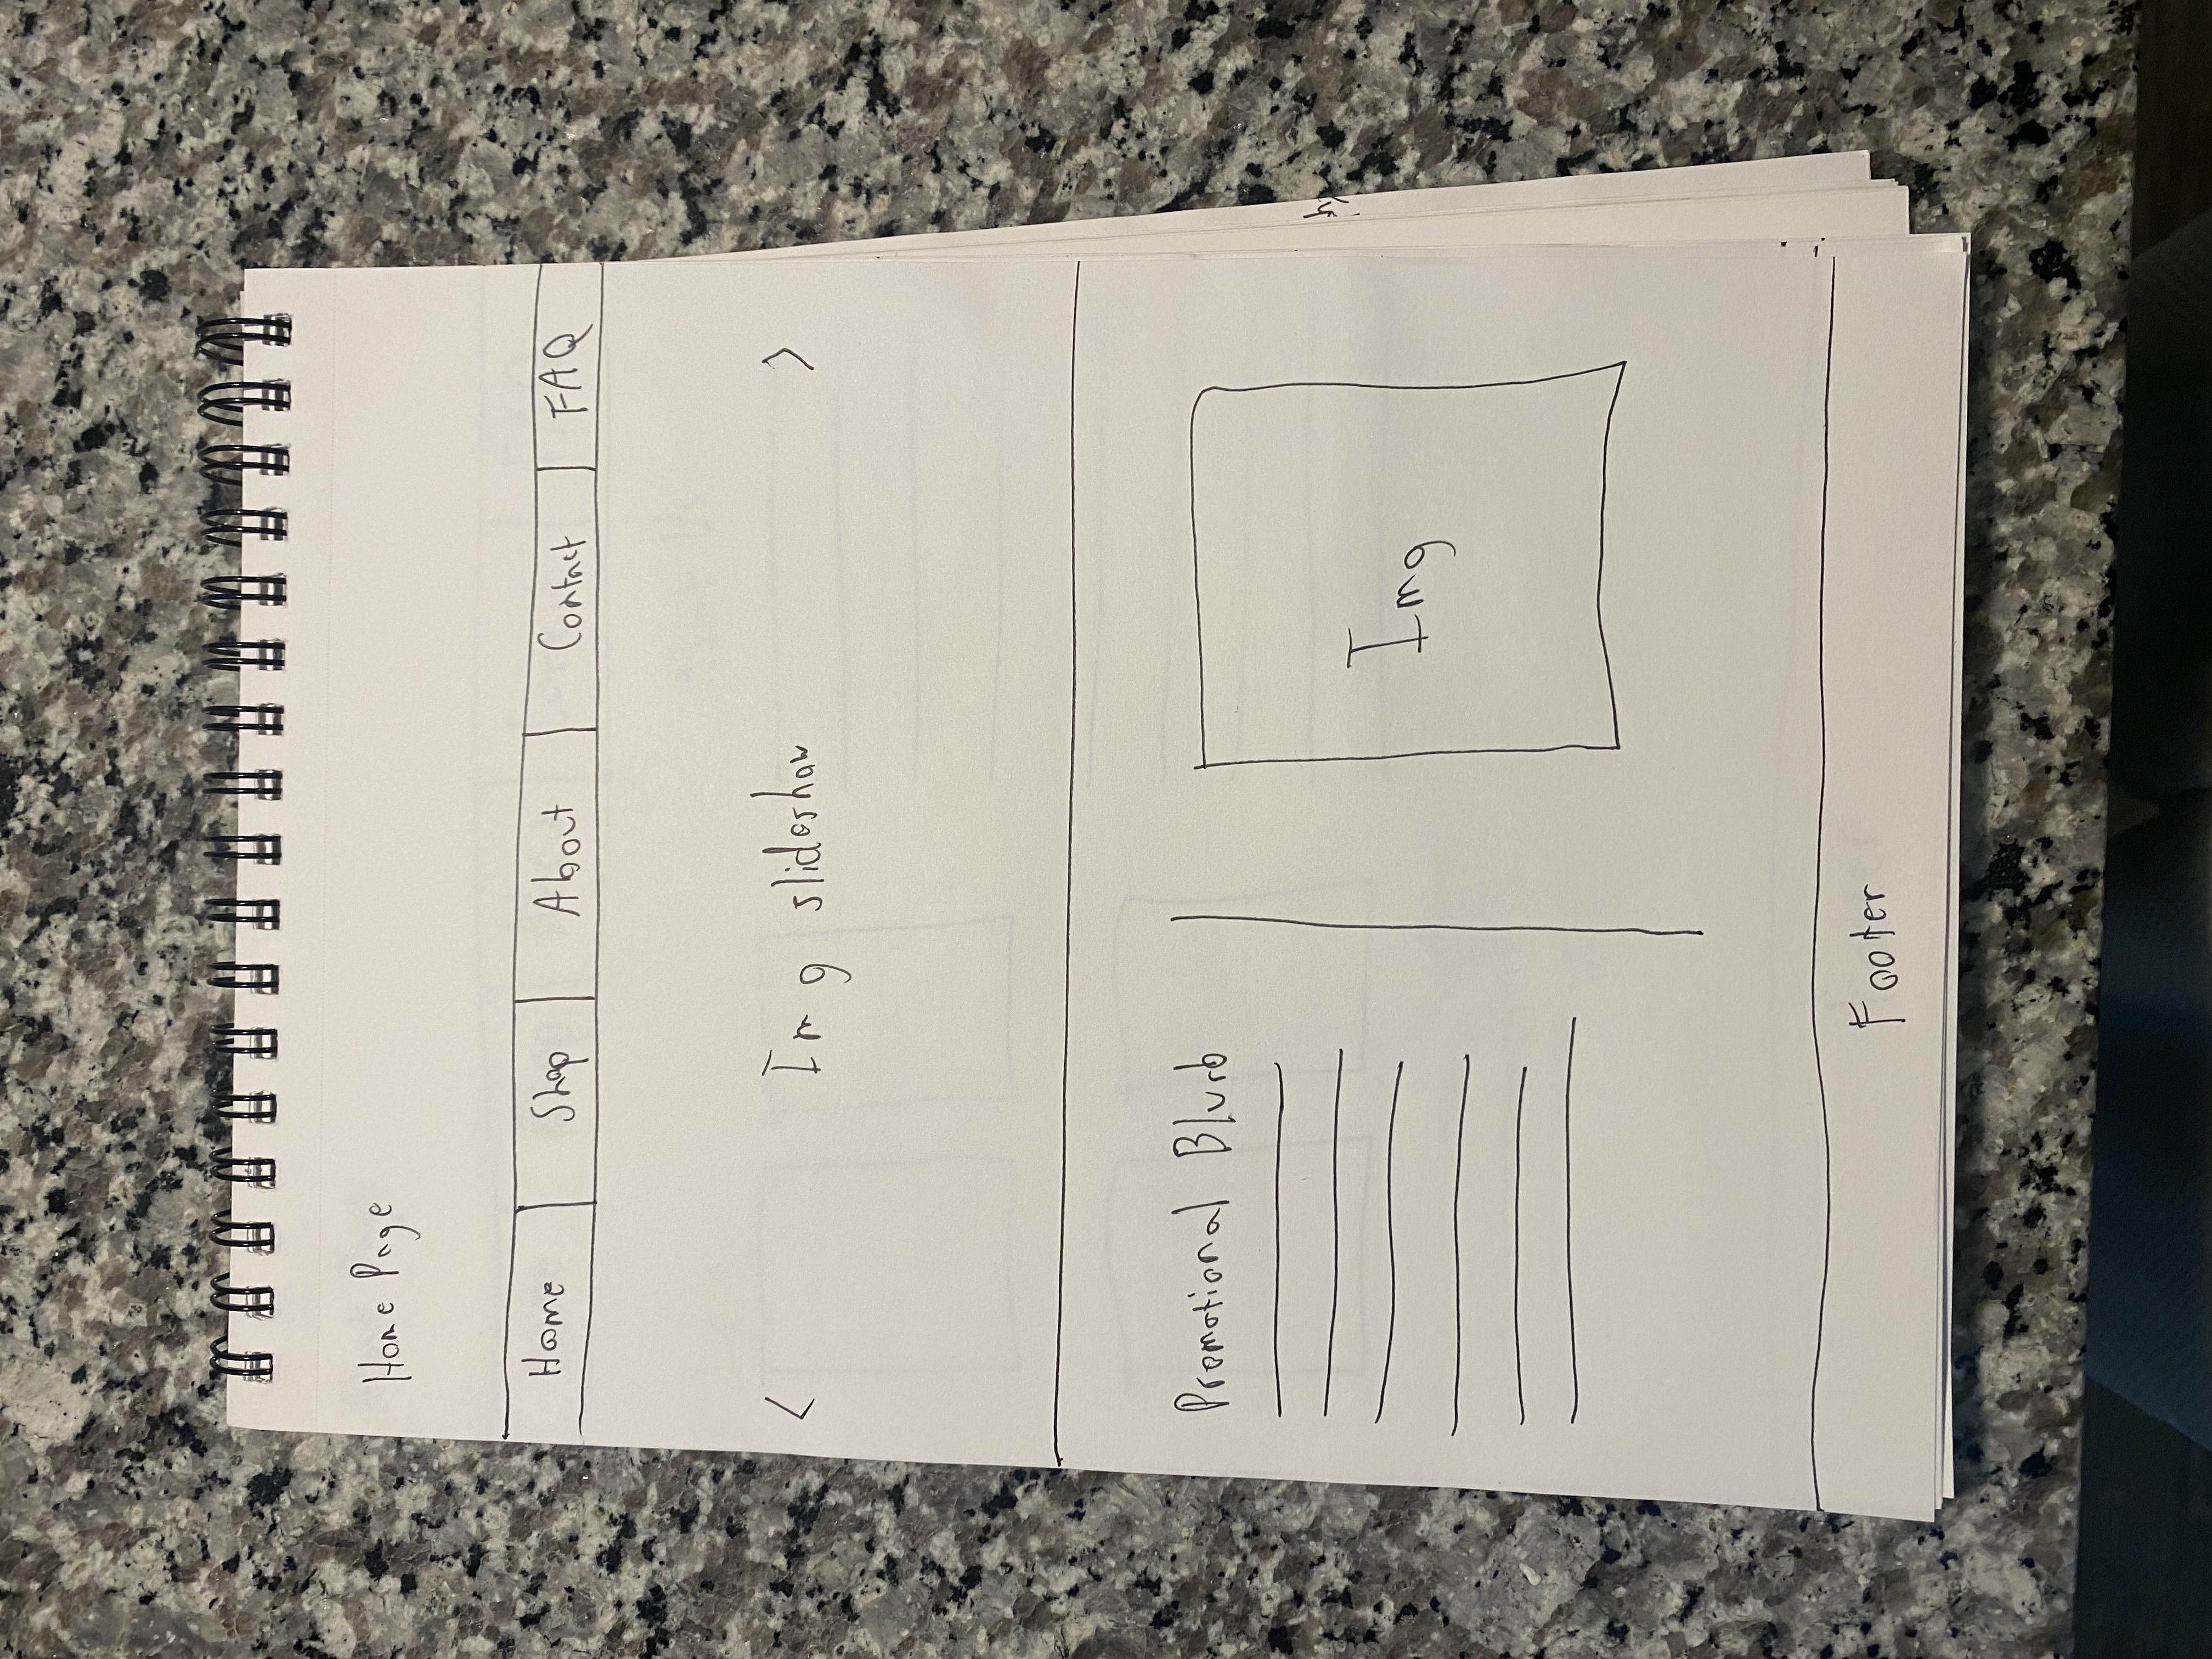 Home Page
Home Shop About Contact FAQ
< Img slideshow >
Promotional Blurb
Img
Footer